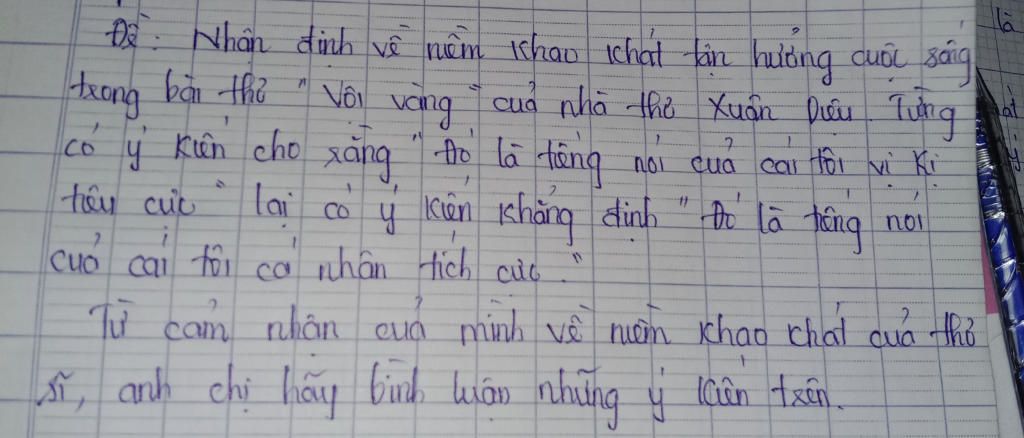 Đề: Nhận định về niềm khao khát tận hưởng cuộc sống
trong bài thơ "Vội vàng" của nhà thơ Xuân Diệu. Từng
có ý kiến cho rằng "Đó là tiếng nói của cái tôi vị kỉ
tiêu cực" lại có ý kiến khẳng định "Đó là tiếng nói
của cái tôi cá nhân tích cực."
Từ cảm nhận của mình về niềm khao chát của thơ
sĩ, anh chị hãy bình luận những ý kiến trên.